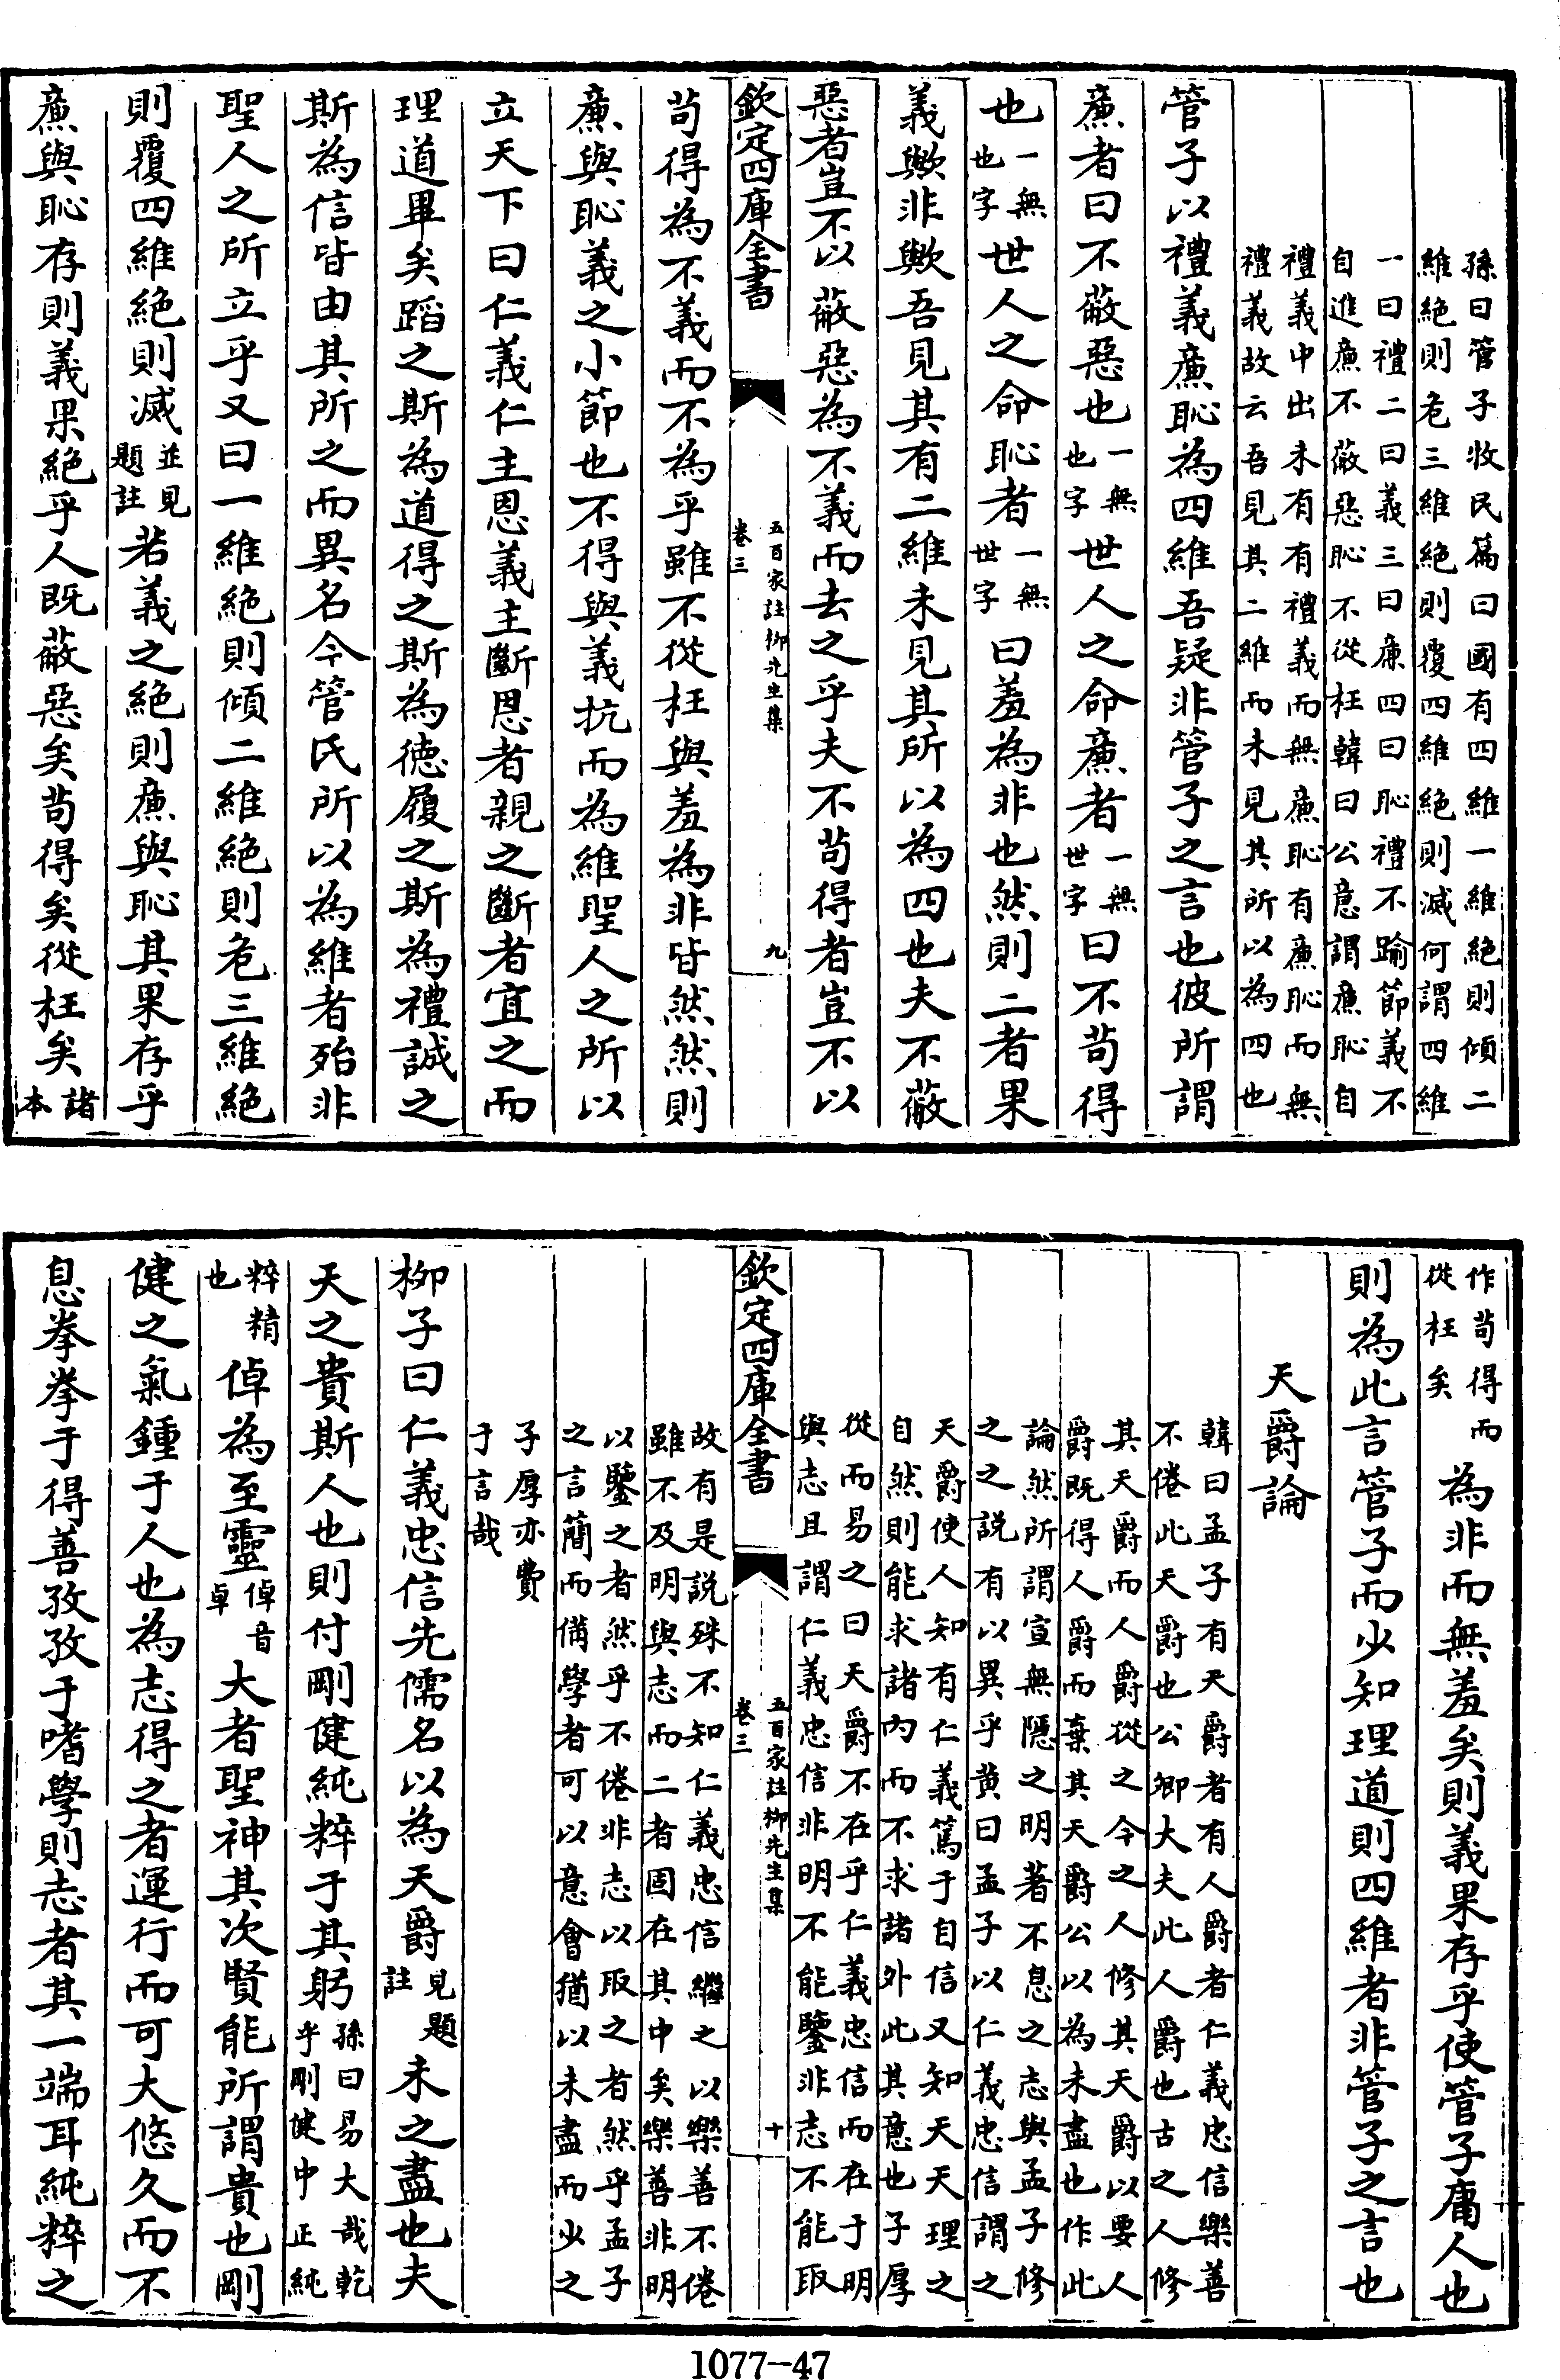 孫曰管子牧民篇曰國有四維一維絕則傾二
維絕則危三維絕則覆四維絕則滅何謂四維
一曰禮二曰義三曰廉四曰恥禮不踰節義不
自進廉不蔽惡恥不從枉韓曰公意謂廉恥自
禮義中出未有有禮義而無廉恥有廉恥而無
禮義故云吾見其二維而未見其所以為四也
管子以禮義廉恥為四維吾疑非管子之言也彼所謂
廉者曰不蔽惡也一無也字世人之命廉者一無世字曰不茍得
也一無也字世人之命恥者一無世字曰羞為非也然則二者果
義歟非歟吾見其有二維未見其所以為四也夫不蔽
惡者豈不以蔽惡為不義而去之乎夫不茍得者豈不以
欽定四庫全書
五百家註柳先生集
卷三
九
茍得為不義而不為乎雖不從枉與羞為非皆然然則
廉與恥義之小節也不得與義抗而為維聖人之所以
立天下曰仁義仁主恩義主斷恩者親之斷者宜之而
理道畢矣蹈之斯為道得之斯為德履之斯為禮誠之
斯為信皆由其所之而異名今管氏所以為維者殆非
聖人之所立乎又曰一維絕則傾二維絕則危三維絕
則覆四維絕則滅並見題註若義之絕則廉與恥其果存乎
廉與恥存則義果絕乎人既蔽惡矣茍得矣從枉矣諸本
作茍得而從枉矣為非而無羞矣則義果存乎使管子庸人也
則為此言管子而少知理道則四維者非管子之言也
天爵論
韓曰孟子有天爵者有人爵者仁義忠信樂善
不倦此天爵也公卿大夫此人爵也古之人修
其天爵而人爵從之今之人修其天爵以要人
爵既得人爵而棄其天爵公以為未盡也作此
論然所謂宣無隱之明著不息之志與孟子修
之之說有以異乎黃曰孟子以仁義忠信謂之
天爵使人知有仁義篤于自信又知天天理之
自然則能求諸內而不求諸外此其意也子厚
從而易之曰天爵不在乎仁義忠信而在于明
與志且謂仁義忠信非明不能鑒非志不能取
欽定四庫全書
五百家註柳先生集
卷三
十
故有是說殊不知仁義忠信繼之以樂善不倦
雖不及明與志而二者固在其中矣樂善非明
以鑒之者然乎不倦非志以取之者然乎孟子
之言簡而備學者可以意會猶以未盡而少之
子厚亦費
于言哉
柳子曰仁義忠信先儒名以為天爵見題註未之盡也夫
天之貴斯人也則付剛健純粹于其躬孫曰易大哉乾乎剛健中正純
粹精也倬為至靈倬音卓大者聖神其次賢能所謂貴也剛
健之氣鍾于人也為志得之者運行而可大悠久而不
息拳拳于得善孜孜于嗜學則志者其一端耳純粹之
1077-47